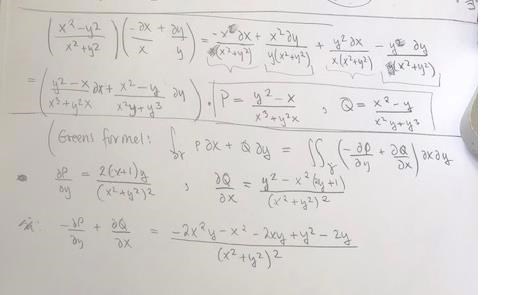 (x²-y²/x²+y²)(-∂x/x + ∂y/y) = -x∂x/(x²+y²) + x²∂y/y(x²+y²) + y²∂x/x(x²+y²) - y∂y/(x²+y²)
= (y²-x/x³+y²x ∂x + x²-y/x²y+y³ ∂y). P = y²-x/x³+y²x , Q = x²-y/x²y+y³
(Greens formel: ∫∂γ P∂x + Q∂y = ∬γ (-∂P/∂y + ∂Q/∂x) ∂x∂y
∂P/∂y = 2(x+1)y/(x²+y²)² , ∂Q/∂x = y²-x²(2y+1)/(x²+y²)²
-∂P/∂y + ∂Q/∂x = -2x²y-x²-2xy+y²-2y/(x²+y²)²